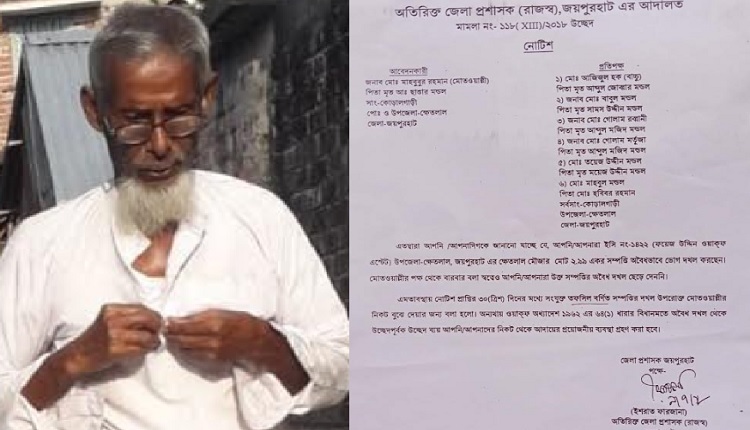 অতিরিক্ত জেলা প্রশাসক (রাজস্ব),জয়পুরহাট এর আদালত
মামলা নং- ১১৮(XIII)/২০১৮ উচ্ছেদ
নোটিশ
আবেদনকারী
জনাব মোঃ মাহবুবুর রহমান (মোতওয়াল্লী)
পিতা মৃত আঃ ছাত্তার মন্ডল
সাং-কোড়ালগাড়ী
পোঃ ও উপজেলা-ক্ষেতলাল
জেলা-জয়পুরহাট
প্রতিপক্ষ
১) মোঃ আজিজুল হক (বাবু)
পিতা মৃত আব্দুল জোব্বার মন্ডল
২) জনাব মোঃ বাবুল মন্ডল
পিতা মৃত সামস উদ্দীন মন্ডল
৩) জনাব মোঃ গোলাম রব্বানী
পিতা মৃত আব্দুল মজিদ মন্ডল
৪) জনাব মোঃ গোলাম মর্তুজা
পিতা মৃত আব্দুল মজিদ মন্ডল
৫) মোঃ তয়েজ উদ্দীন মন্ডল
পিতা মৃত ময়েজ উদ্দীন মন্ডল
৬) মোঃ মাহবুল মন্ডল
পিতা মোঃ হবিবর রহমান
সর্বসাং-কোড়ালগাড়ী
উপজেলা-ক্ষেতলাল
জেলা-জয়পুরহাট
এতদ্বারা আপনি /আপনাদিগকে জানানো যাচ্ছে যে, আপনি/আপনারা ইসি নং-১৪২২ (ফয়েজ উদ্দিন ওয়াক্‌ফ
এস্টেট) উপজেলা-ক্ষেতলাল, জয়পুরহাট এর ক্ষেতলাল মৌজার মোট ২.৯৯ একর সম্পত্তি অবৈধভাবে ভোগ দখল করছেন।
মোতওয়াল্লীর পক্ষ থেকে বারবার বলা স্বত্বেও আপনি/আপনারা উক্ত সম্পত্তির অবৈধ দখল ছেড়ে দেননি।
এমতাবস্থায় নোটিশ প্রাপ্তির ৩০(ত্রিশ) দিনের মধ্যে সংযুক্ত তফসিল বর্ণিত সম্পত্তির দখল উপরোক্ত মোতওয়াল্লীর
নিকট বুঝে দেয়ার জন্য বলা হলো। অন্যথায় ওয়াক্‌ফ অধ্যাদেশ ১৯৬২ এর ৬৪(১) ধারার বিধানমতে অবৈধ দখল থেকে
উচ্ছেদপূর্বক উচ্ছেদ ব্যয় আপনি/আপনাদের নিকট থেকে আদায়ের প্রয়োজনীয় ব্যবস্থা গ্রহণ করা হবে।
জেলা প্রশাসক জয়পুরহাট
পক্ষে-
(ইশরাত ফারজানা)
অতিরিক্ত জেলা প্রশাসক (রাজস্ব)